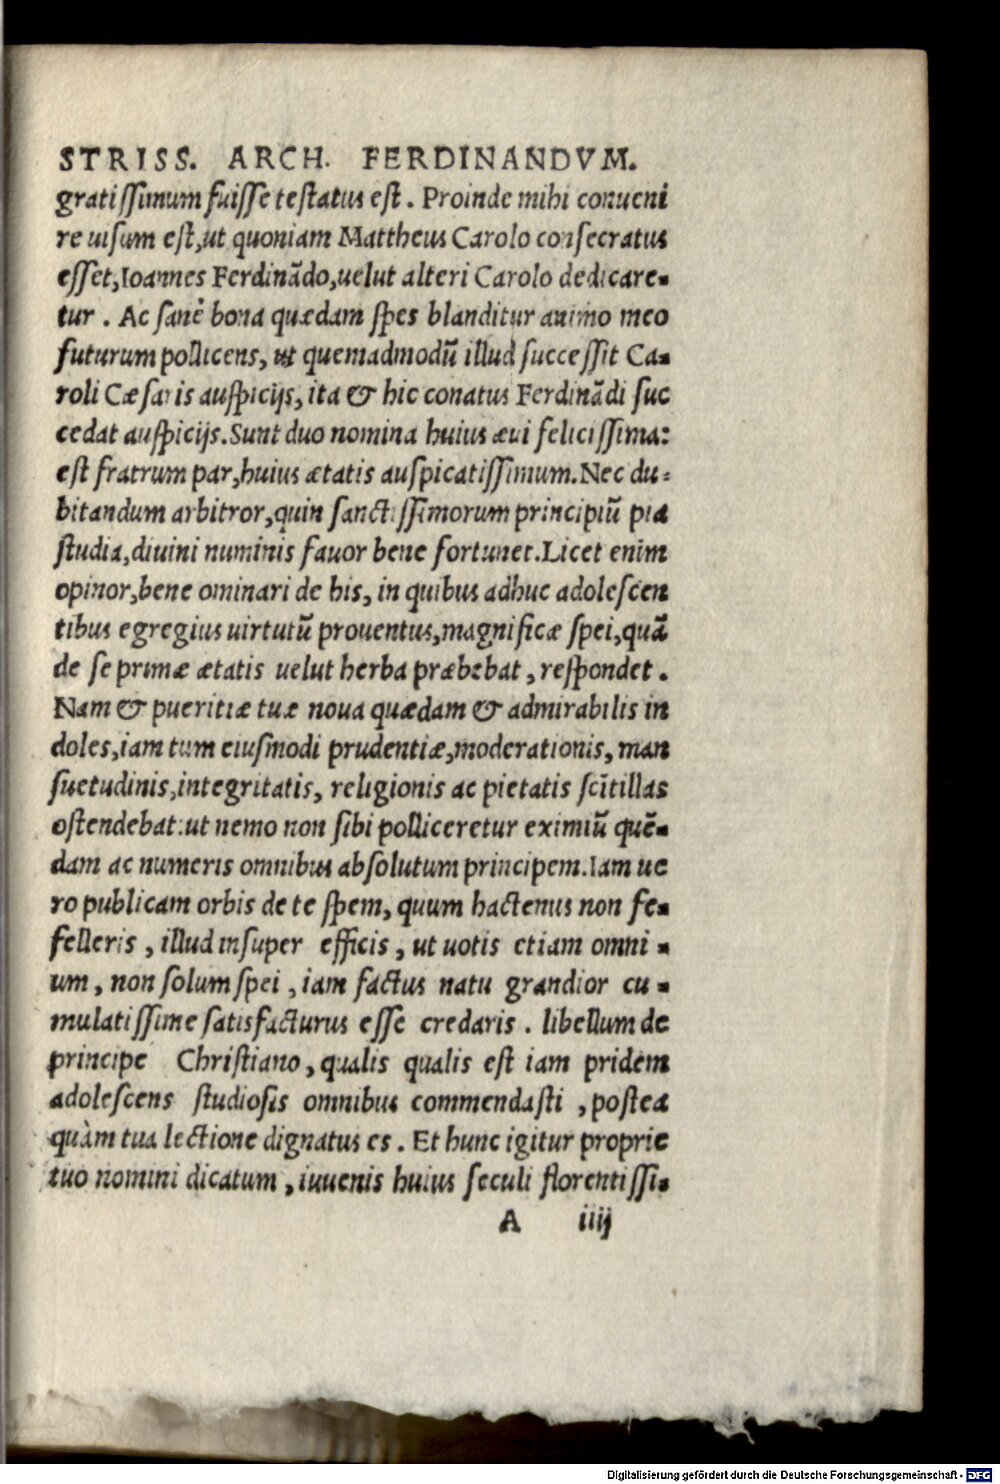 STRISS. ARCH. FERDINANDVM.
gratissimum fuisse testatus est. Proinde mihi conueni
re uisum est, ut quoniam Mattheus Carolo consecratus
esset, Ioannes Ferdinãdo, uelut alteri Carolo dedicare-
tur. Ac sanè bona quædam spes blanditur animo meo
futurum pollicens, ut quemadmodũ illud successit Ca-
roli Cæsaris auspicijs, ita & hic conatus Ferdinãdi suc
cedat auspicijs. Sunt duo nomina huius æui felicissima:
est fratrum par, huius ætatis auspicatissimum. Nec du-
bitandum arbitror, quin sanctissimorum principiũ pia
studia, diuini numinis fauor bene fortunet. Licet enim
opinor, bene ominari de his, in quibus adhuc adolescen
tibus egregius uirtutũ prouentus, magnificæ spei, quã
de se primæ ætatis uelut herba præbebat, respondet.
Nam & pueritiæ tuæ noua quædam & admirabilis in
doles, iam tum eiusmodi prudentiæ, moderationis, man
suetudinis, integritatis, religionis ac pietatis scĩtillas
ostendebat: ut nemo non sibi polliceretur eximiũ quẽ-
dam ac numeris omnibus absolutum principem. Iam ue
ro publicam orbis de te spem, quum hactenus non fe-
felleris, illud insuper efficis, ut uotis etiam omni-
um, non solum spei, iam factus natu grandior cu-
mulatissime satisfacturus esse credaris. libellum de
principe Christiano, qualis qualis est iam pridem
adolescens studiosis omnibus commendasti, postea
quàm tua lectione dignatus es. Et hunc igitur proprie
tuo nomini dicatum, iuuenis huius seculi florentissi-
A iiij
Digitalisierung gefördert durch die Deutsche Forschungsgemeinschaft - DFG